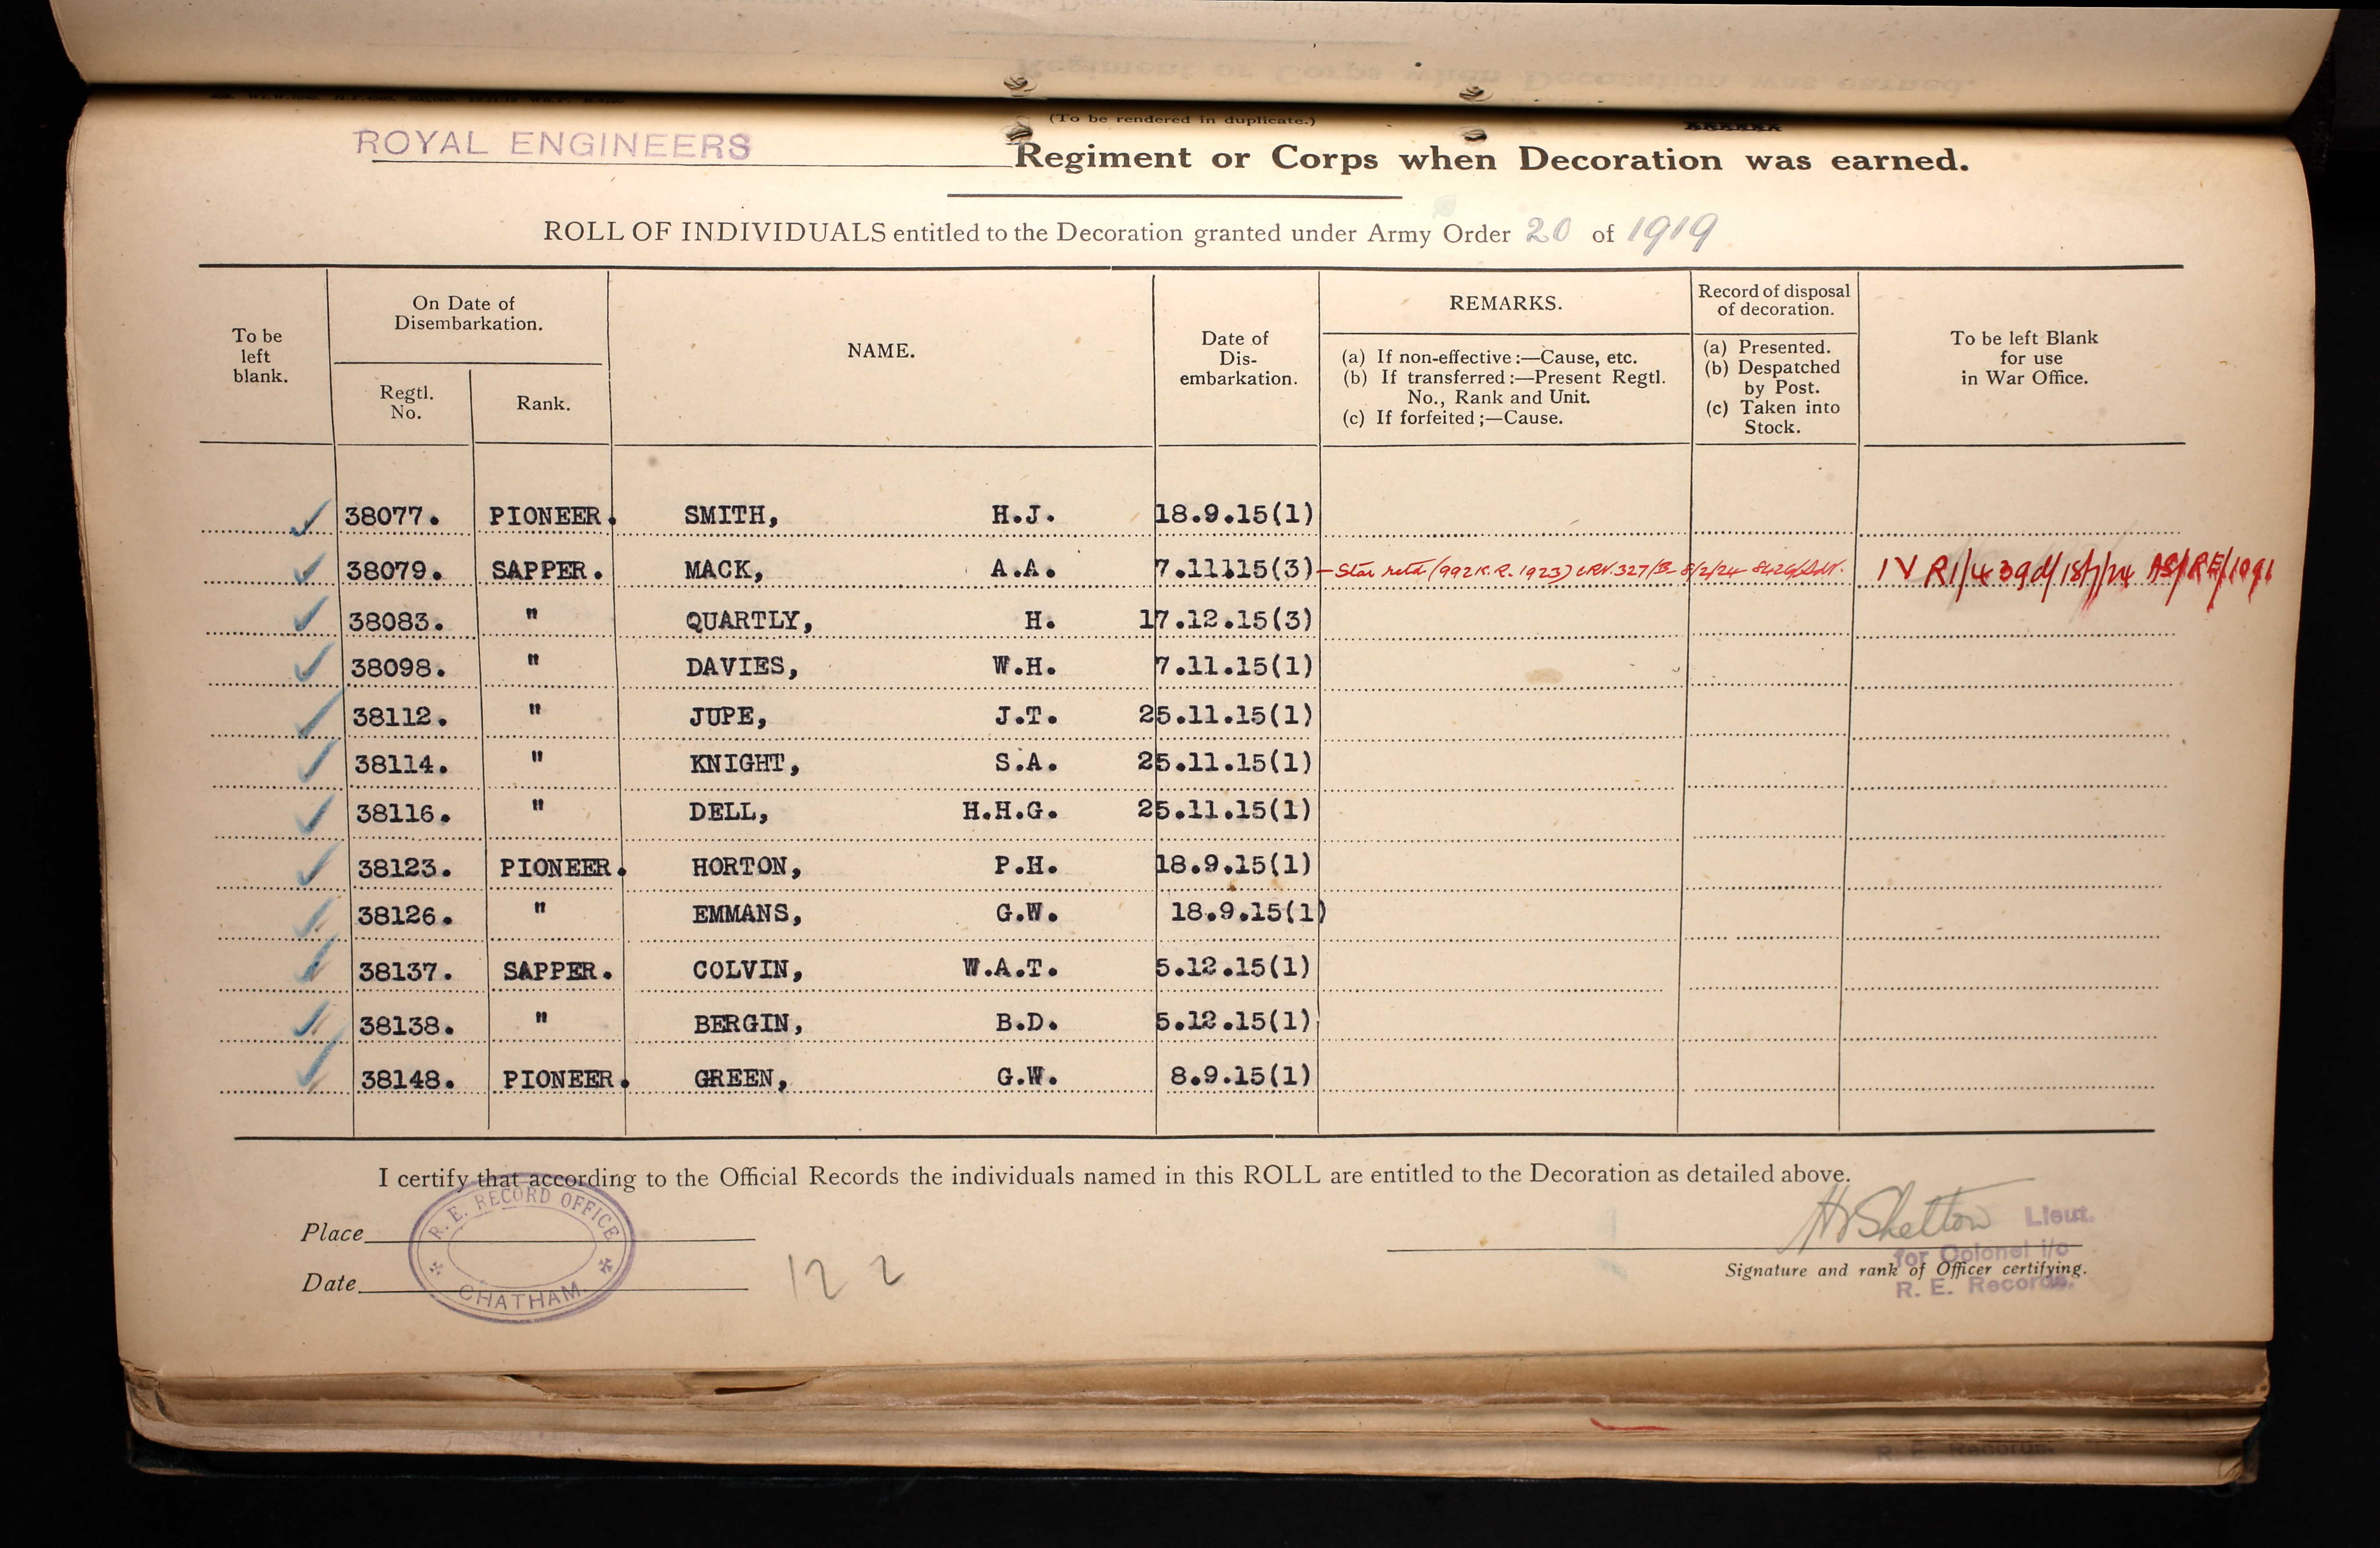 (To be rendered in duplicate.)
ROYAL ENGINEERS Regiment or Corps when Decoration was earned.
ROLL OF INDIVIDUALS entitled to the Decoration granted under Army Order 20 of 1919
To be left blank.
On Date of Disembarkation.
Regtl. No.
Rank.
NAME.
Date of Dis-embarkation.
REMARKS.
(a) If non-effective:—Cause, etc.
(b) If transferred:—Present Regtl. No., Rank and Unit.
(c) If forfeited;—Cause.
Record of disposal of decoration.
(a) Presented.
(b) Despatched by Post.
(c) Taken into Stock.
To be left Blank for use in War Office.
38077. PIONEER. SMITH, H.J. 18.9.15(1)
38079. SAPPER. MACK, A.A. 7.11115(3) – Star retd (992 K.R. 1923) 8/2/24 IV R1/439d/
38083. " QUARTLY, H. 17.12.15(3)
38098. " DAVIES, W.H. 7.11.15(1)
38112. " JUPE, J.T. 25.11.15(1)
38114. " KNIGHT, S.A. 25.11.15(1)
38116. " DELL, H.H.G. 25.11.15(1)
38123. PIONEER. HORTON, P.H. 18.9.15(1)
38126. " EMMANS, G.W. 18.9.15(1)
38137. SAPPER. COLVIN, W.A.T. 5.12.15(1)
38138. " BERGIN, B.D. 5.12.15(1)
38148. PIONEER. GREEN, G.W. 8.9.15(1)
I certify that according to the Official Records the individuals named in this ROLL are entitled to the Decoration as detailed above.
Place
Date
R. E. RECORD OFFICE
CHATHAM
12 2
Shelton Lieut.
for Colonel i/c
Signature and rank of Officer certifying.
R. E. Records.